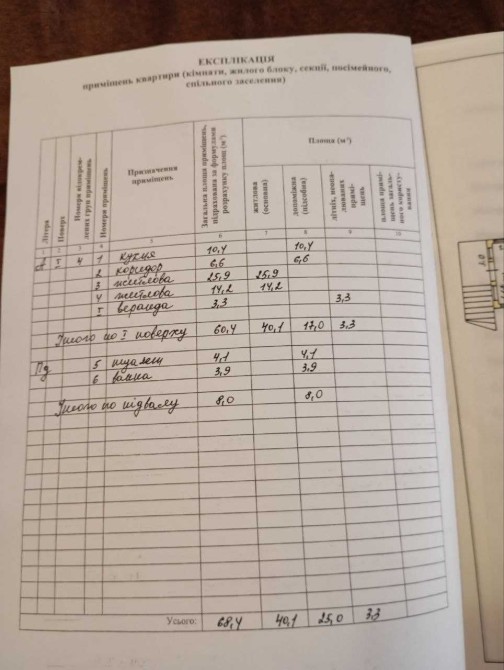 ЕКСПЛІКАЦІЯ
приміщень квартири (кімнати, жилого блоку, секції, посімейного,
спільного заселення)
Літера
Поверх
Номери відокрем-
лених груп приміщень
Номери приміщень
Призначення
приміщень
Загальна площа приміщень,
підрахована за формулами
розрахунку площ (м²)
Площа (м²)
житлова
(основна)
допоміжна
(підсобна)
літніх, неопа-
люваних
примі-
щень
площа примі-
щень загаль-
ного користу-
вання
1 2 3 4 5 6 7 8 9 10
I 4 1 кухня 10,4 10,4
2 коридор 6,6 6,6
3 житлова 25,9 25,9
4 житлова 14,2 14,2
I веранда 3,3 3,3
Усього по I поверху 60,4 40,1 17,0 3,3
Пд 5 туалет 4,1 4,1
6 ванна 3,9 3,9
Усього по підвалу 8,0 8,0
Усього: 68,4 40,1 25,0 3,3